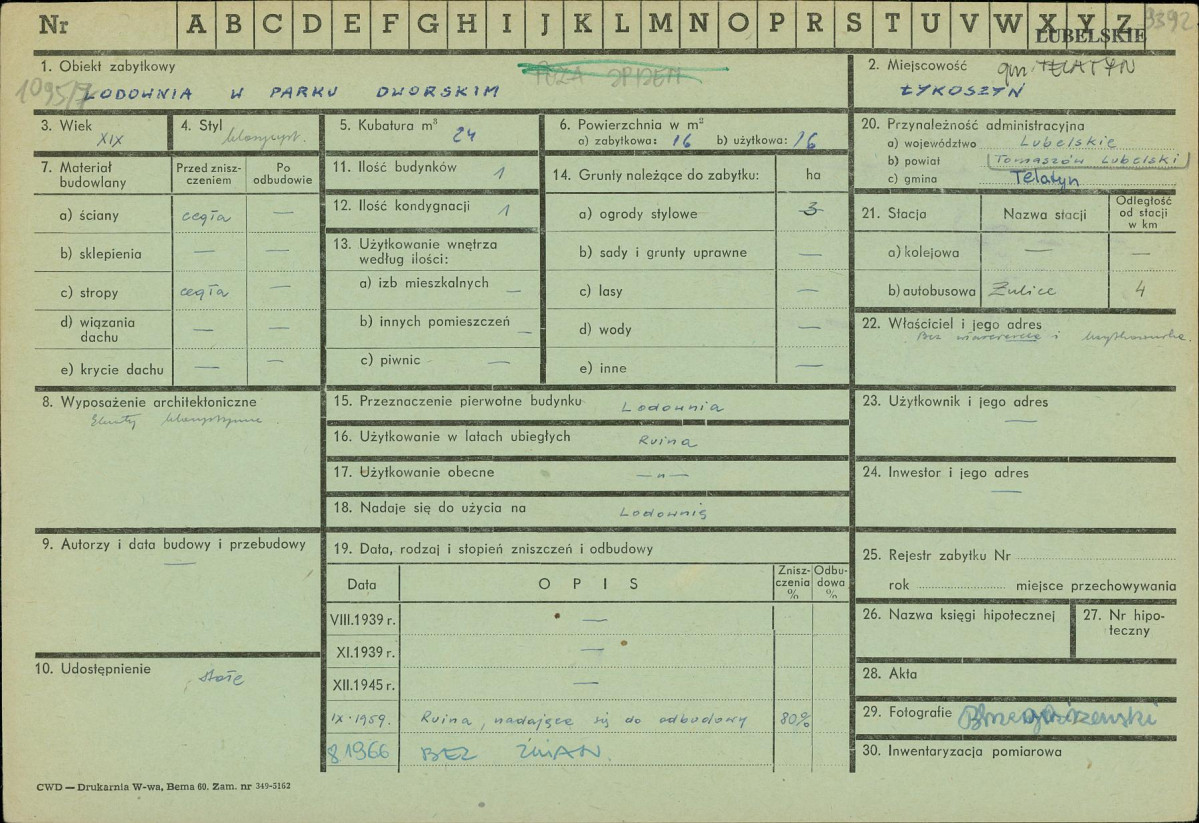 Nr A B C D E F G H I J K L M N O P R S T U V W X Y Z 3392
LUBELSKIE
1. Obiekt zabytkowy
POZA SPISEM
1095/7
LODOWNIA W PARKU DWORSKIM
2. Miejscowość gm. TELATYN
ŁYKOSZYN
3. Wiek
XIX
4. Styl
klasycyst.
5. Kubatura m³
24
6. Powierzchnia w m²
a) zabytkowa: 16 b) użytkowa: 16
7. Materiał budowlany
Przed zniszczeniem
Po odbudowie
a) ściany cegła —
b) sklepienia — —
c) stropy cegła —
d) wiązania dachu — —
e) krycie dachu — —
8. Wyposażenie architektoniczne
9. Autorzy i data budowy i przebudowy
—
10. Udostępnienie
stałe
11. Ilość budynków 1
12. Ilość kondygnacji 1
13. Użytkowanie wnętrza według ilości:
a) izb mieszkalnych —
b) innych pomieszczeń —
c) piwnic —
14. Grunty należące do zabytku: ha
a) ogrody stylowe 3
b) sady i grunty uprawne —
c) lasy —
d) wody —
e) inne —
15. Przeznaczenie pierwotne budynku Lodownia
16. Użytkowanie w latach ubiegłych Ruina
17. Użytkowanie obecne —„—
18. Nadaje się do użycia na Lodownię
19. Data, rodzaj i stopień zniszczeń i odbudowy
Data
O P I S
Zniszczenia %
Odbudowa %
VIII.1939 r. —
XI.1939 r. —
XII.1945 r. —
IX.1959. Ruina, nadająca się do odbudowy 80%
8 1966 BEZ ZMIAN
20. Przynależność administracyjna
a) województwo Lubelskie
b) powiat Tomaszów Lubelski
c) gmina Telatyn
21. Stacja
Nazwa stacji
Odległość od stacji w km
a) kolejowa — —
b) autobusowa Żulice 4
22. Właściciel i jego adres
Bez właściciela i użytkownika.
23. Użytkownik i jego adres
—
24. Inwestor i jego adres
—
25. Rejestr zabytku Nr
rok miejsce przechowywania
26. Nazwa księgi hipotecznej
27. Nr hipoteczny
28. Akta
29. Fotografie
30. Inwentaryzacja pomiarowa
CWD — Drukarnia W-wa, Bema 60. Zam. nr 349-5162